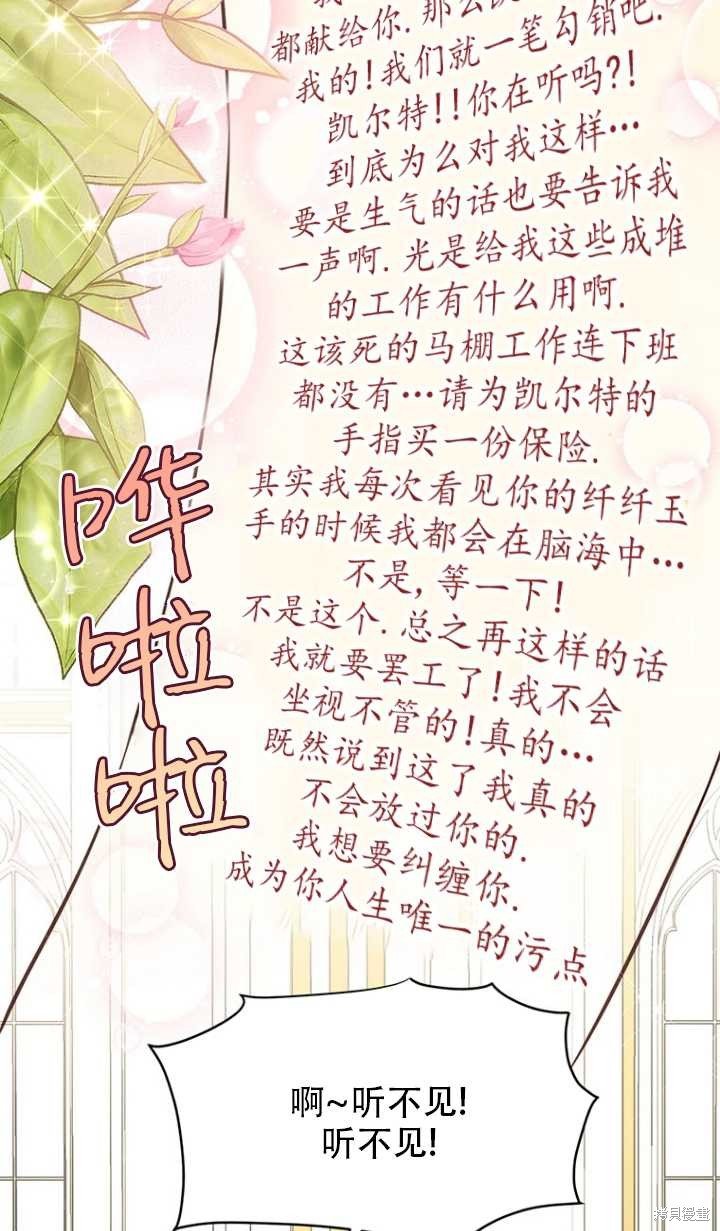 都献给你. 那么
我的! 我们就一笔勾销吧.
凯尔特!! 你在听吗?!
到底为么对我这样…
要是生气的话也要告诉我
一声啊. 光是给我这些成堆
的工作有什么用啊.
这该死的马棚工作连下班
都没有…请为凯尔特的
手指买一份保险.
其实我每次看见你的纤纤玉
手的时候我都会在脑海中…
不是, 等一下!
不是这个. 总之再这样的话
我就要罢工了! 我不会
坐视不管的! 真的…
既然说到这了我真的
不会放过你的.
我想要纠缠你.
成为你人生唯一的污点
哗
啦
啦
啊~听不见!
听不见!
拷貝漫畫